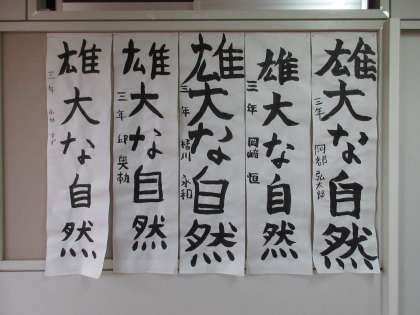 雄大な自然
三年 阿部 弘太郎
雄大な自然
三年 岡崎 恒
雄大な自然
三年 川 永和
雄大な自然
三年 邱 奥
雄大な自然
三年